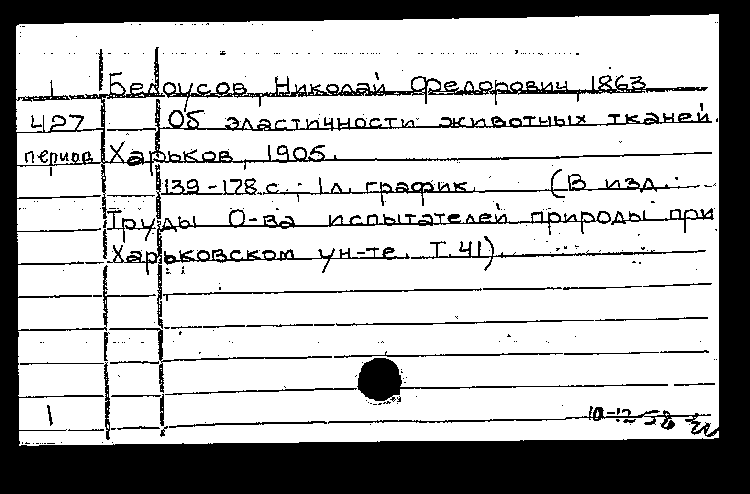 1 Белоусов, Николай Федорович, 1863
427 Об эластичности животных тканей.
период Харьков, 1905.
139-178 с.; 1 л. график. (В изд.:
Труды О-ва испытателей природы при
Харьковском ун-те. Т. 41).
1
10-12-58